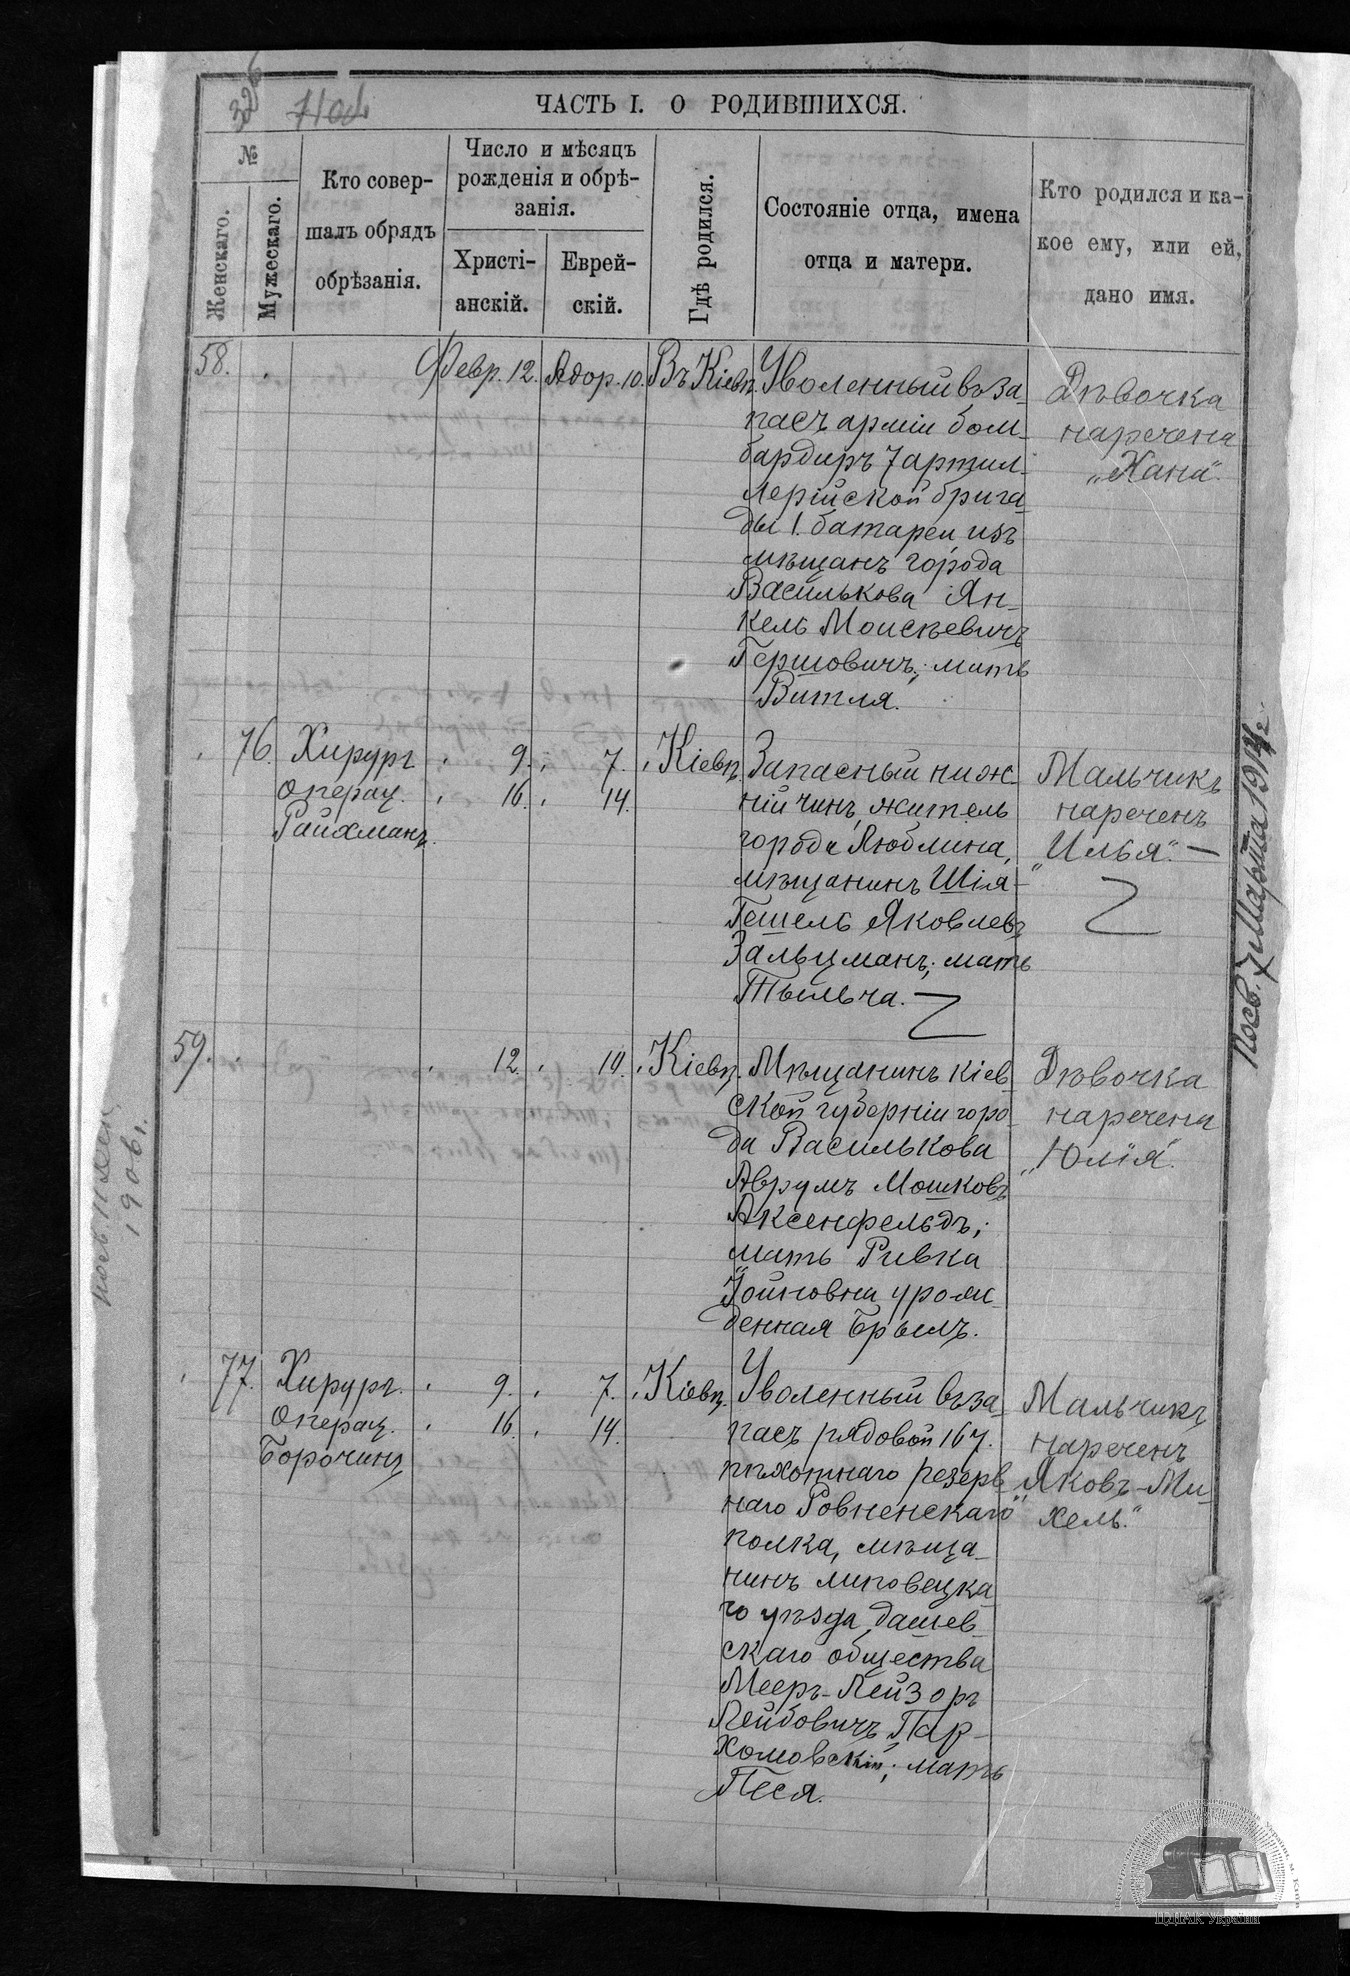 326
ЧАСТЬ I. О РОДИВШИХСЯ.
№
Женскаго.
Мужескаго.
Кто совер-
шалъ обрядъ
обрѣзанія.
Число и мѣсяцъ
рожденія и обрѣ-
занія.
Христі-
анскій.
Еврей-
скій.
Гдѣ родился.
Состояніе отца, имена
отца и матери.
Кто родился и ка-
кое ему, или ей,
дано имя.
58. Февр. 12. Адор. 10. Въ Кіевѣ.
Уволенный въ за-
пасъ арміи бом-
бардиръ 7 артил-
лерійской брига-
ды 1. батареи изъ
мѣщанъ города
Василькова Ян-
кель Моисѣевичъ
Гершовичъ; мать
Витля.
Дѣвочка
наречена
„Хана".
76. Хирург 9. 7. Кіевѣ.
Операц. 16. 14.
Райхманъ.
Запасный ниж-
ній чинъ, житель
города Люблина,
мѣщанинъ Шія-
Гешель Яковлевъ
Зальцманъ; мать
Тыльча.
Мальчикъ
нареченъ
„Илья". —
59. 12. 10. Кіевѣ.
Мѣщанинъ кіев-
ской губерніи горо-
да Василькова
Аврумъ Мошковъ
Аксенфельдъ;
мать Ривка
Іойновна урож-
денная Брылъ.
Дѣвочка
наречена
„Юлія".
77. Хирург. 9. 7. Кіевѣ.
Операц. 16. 14.
Борочинъ
Уволенный въ за-
пасъ рядовой 167.
пѣхотнаго резерв-
наго Ровненскаго
полка, мѣща-
нинъ липовецка-
го уѣзда дашев-
скаго общества
Мееръ-Лейзоръ
Лейбовичъ Пар-
хомовскій; мать
Песя.
Мальчикъ
нареченъ
„Яковъ-Ми-
хель."
Посв. 7 Марта 1914 г.
1906 г.
ЦДІАК України